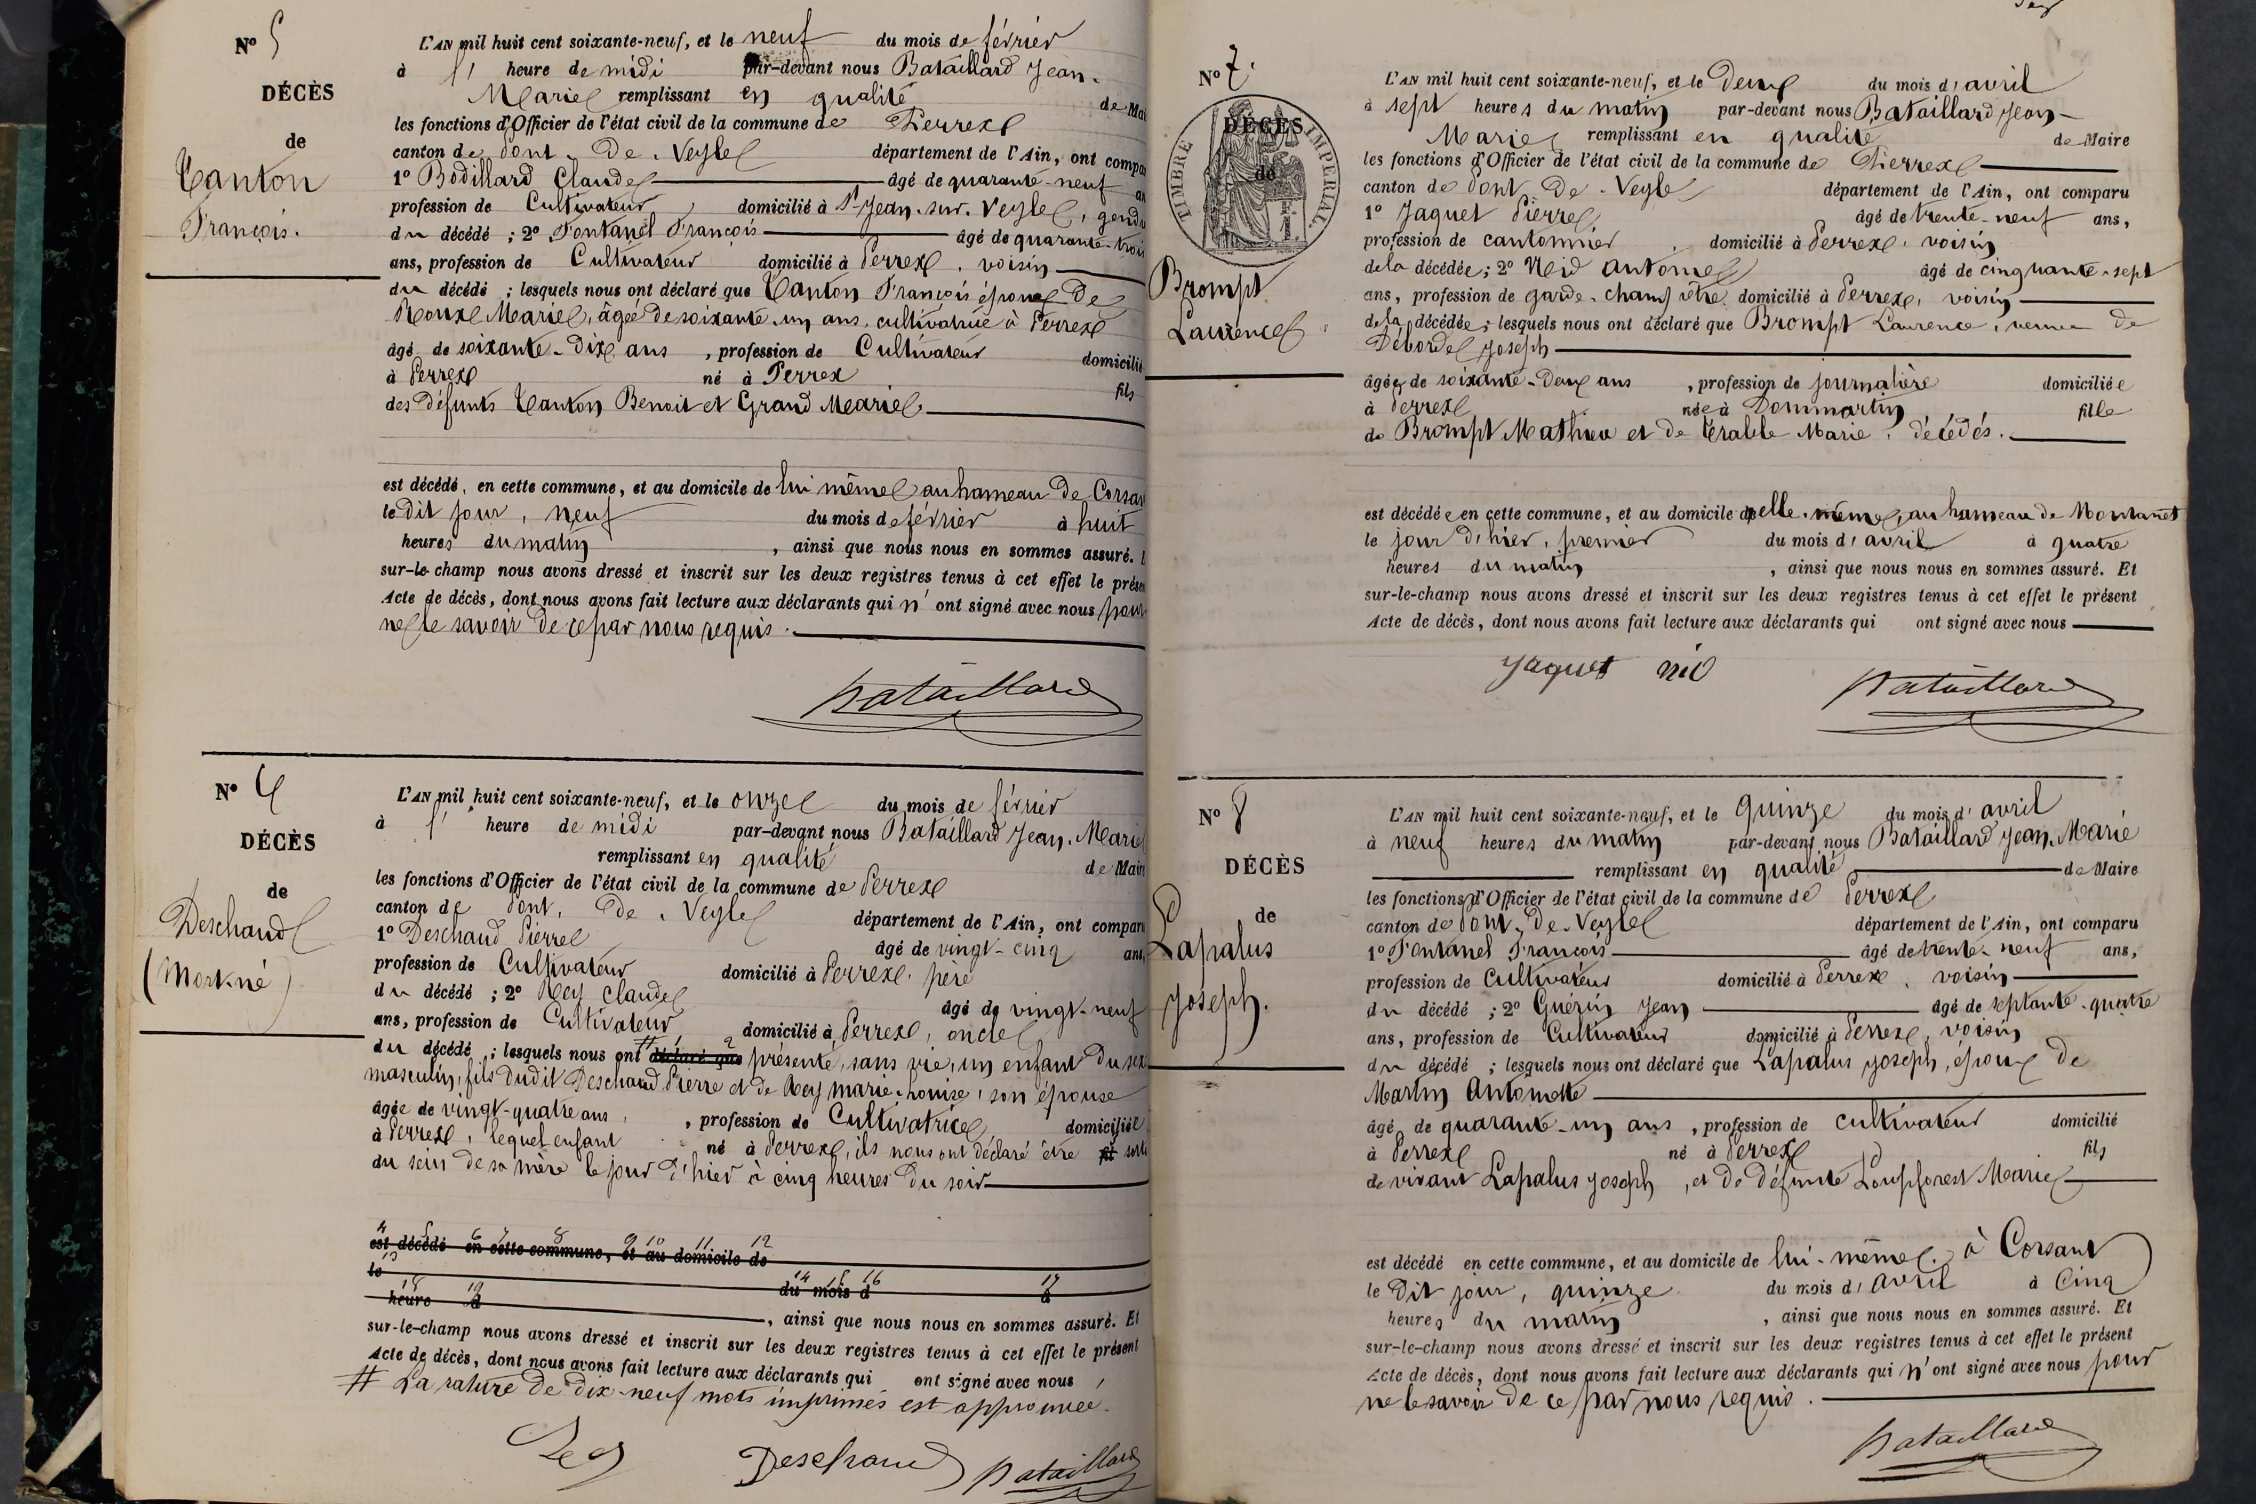 N° 5
DÉCÈS
de
Tanton
François.
L'AN mil huit cent soixante-neuf, et le neuf du mois de février
à 1 heure de midi par-devant nous Bataillard Jean-
Marie remplissant en qualité de Mai
les fonctions d'Officier de l'état civil de la commune de Perrex
canton de Pont-De-Veyle département de l'Ain, ont compa
1° Bodillard Claude âgé de quarante-neuf an
profession de Cultivateur domicilié à St-Jean-sur-Veyle, gend
du décédé ; 2° Fontanel François âgé de quarante-trois
ans, profession de Cultivateur domicilié à Perrex, voisin
du décédé ; lesquels nous ont déclaré que Tanton François époux De
Roux Marie, âgée de soixante-un ans, cultivatrice à Perrex
âgé de soixante-dix ans , profession de Cultivateur domicilié
à Perrex né à Perrex fils
des défunts Tanton Benoit et Grand Marie
est décédé, en cette commune, et au domicile de lui même au hameau De Corsan
le dit jour, neuf du mois de février à huit
heures du matin , ainsi que nous nous en sommes assuré.
sur-le-champ nous avons dressé et inscrit sur les deux registres tenus à cet effet le prései
Acte de décès, dont nous avons fait lecture aux déclarants qui n'ont signé avec nous pour
ne le savoir de ce par nous requis.
Bataillard
N° 6
DÉCÈS
de
Deschaud
(Mort-né)
L'AN mil huit cent soixante-neuf, et le onze du mois de février
à 1 heure de midi par-devant nous Bataillard Jean-Marie
remplissant en qualité de Mair
les fonctions d'Officier de l'état civil de la commune de Perrex
canton de Pont-De-Veyle département de l'Ain, ont compar
1° Deschaud Pierre âgé de vingt-cinq ans,
profession de Cultivateur domicilié à Perrex, père
du décédé ; 2° Rey Claude âgé de vingt-neuf
ans, profession de Cultivateur domicilié à Perrex, oncle
du décédé ; lesquels nous ont # déclaré que présenté, sans vie, un enfant du sex
masculin, fils dudit Deschaud Pierre et de Rey Marie-Louise, son épouse
âgée de vingt-quatre ans , profession de Cultivatrice domiciliée
à Perrex, lequel enfant né à Perrex, ils nous ont déclaré être sorti
du sein de sa mère le jour d'hier à cinq heures du soir
est décédé en cette commune, et au domicile de
le du mois d à
heure d , ainsi que nous nous en sommes assuré. Et
sur-le-champ nous avons dressé et inscrit sur les deux registres tenus à cet effet le présent
Acte de décès, dont nous avons fait lecture aux déclarants qui ont signé avec nous
# La rature de dix-neuf mots imprimés est approuvée.
Rey Deschaud Bataillard
N° 7.
TIMBRE IMPERIAL
DÉCÈS
de
Brompt
Laurence
L'AN mil huit cent soixante-neuf, et le deux du mois d'avril
à sept heures du matin par-devant nous Bataillard Jean-
Marie remplissant en qualité de Maire
les fonctions d'Officier de l'état civil de la commune de Perrex
canton de Pont-De-Veyle département de l'Ain, ont comparu
1° Jaquet Pierre âgé de trente-neuf ans,
profession de cantonnier domicilié à Perrex, voisin
de la décédée ; 2° Nid Antoine âgé de cinquante-sept
ans, profession de garde-champêtre domicilié à Perrex, voisin
de la décédée ; lesquels nous ont déclaré que Brompt Laurence, veuve de
Debordel Joseph
âgée de soixante-Deux ans , profession de journalière domiciliée
à Perrex née à Dommartin fille
de Brompt Mathieu et de Trable Marie, décédés.
est décédée en cette commune, et au domicile d'elle-même, au hameau de Montanet
le jour d'hier, premier du mois d'avril à quatre
heures du matin , ainsi que nous nous en sommes assuré. Et
sur-le-champ nous avons dressé et inscrit sur les deux registres tenus à cet effet le présent
Acte de décès, dont nous avons fait lecture aux déclarants qui ont signé avec nous
Jaquet nid Bataillard
N° 8
DÉCÈS
de
Lapalus
Joseph.
L'AN mil huit cent soixante-neuf, et le quinze du mois d'avril
à neuf heures du matin par-devant nous Bataillard Jean-Marie
remplissant en qualité de Maire
les fonctions d'Officier de l'état civil de la commune de Perrex
canton de Pont-De-Veyle département de l'Ain, ont comparu
1° Fontanel François âgé de trente-neuf ans,
profession de Cultivateur domicilié à Perrex, voisin
du décédé ; 2° Guérin Jean âgé de septante-quatre
ans, profession de Cultivateur domicilié à Perrex, voisin
du décédé ; lesquels nous ont déclaré que Lapalus Joseph, époux de
Martin Antoinette
âgé de quarante-un ans , profession de cultivateur domicilié
à Perrex né à Perrex fils
de vivant Lapalus Joseph, et de défunte Loupforest Marie
est décédé en cette commune, et au domicile de lui-même, à Corsant
le Dit jour, quinze du mois d'avril à Cinq
heures du matin , ainsi que nous nous en sommes assuré. Et
sur-le-champ nous avons dressé et inscrit sur les deux registres tenus à cet effet le présent
Acte de décès, dont nous avons fait lecture aux déclarants qui n'ont signé avec nous pour
ne le savoir de ce par nous requis.
Bataillard